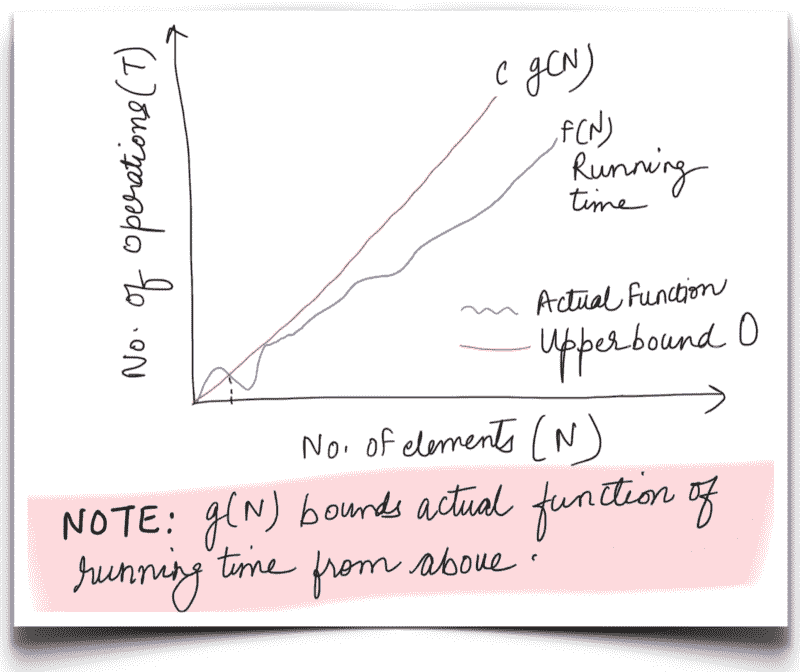 No. of operations (T)
C g(N)
f(N)
Running
time
Actual Function
Upperbound O
No. of elements (N)
NOTE: g(N) bounds actual function of
running time from above.